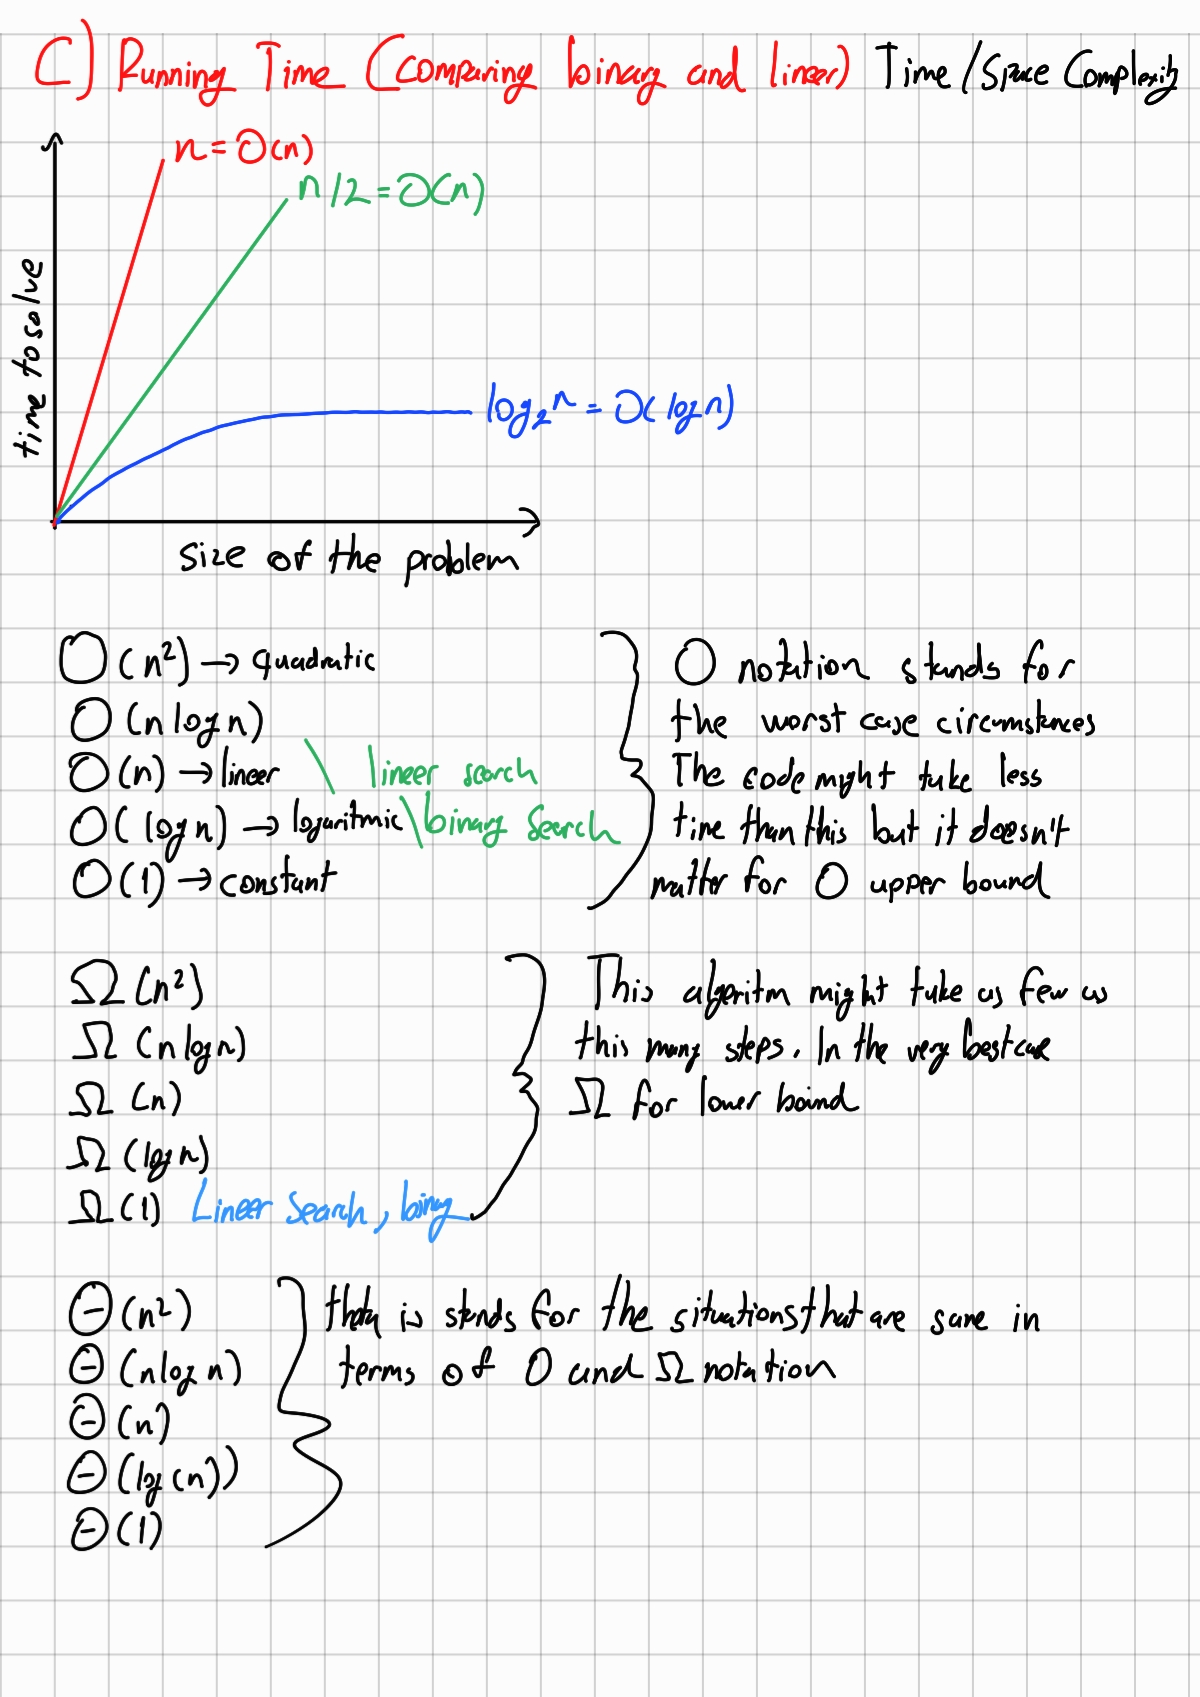 C) Running Time (Comparing binary and lineer) Time/Space Complexity
n = O(n)
n/2 = O(n)
time to solve
log₂n = O(log n)
size of the problem
O(n²) → quadratic
O(n log n)
O(n) → lineer \ lineer search
O(log n) → logaritmic \ binary search
O(1) → constant
O notation stands for
the worst case circumstances
The code might take less
time than this but it doesn't
matter for O upper bound
Ω(n²)
Ω(n log n)
Ω(n)
Ω(log n)
Ω(1) Lineer Search, binary
This algoritm might take as few as
this many steps. In the very best case
Ω for lower bound
Θ(n²)
Θ(n log n)
Θ(n)
Θ(log(n))
Θ(1)
theta is stands for the situations that are same in
terms of O and Ω notation